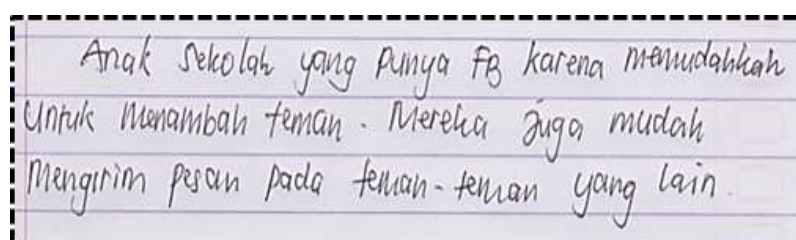 Anak Sekolah yang punya FB karena memudahkah
Untuk Menambah teman. Mereka juga mudah
Mengirim pesan pada teman-teman yang lain.